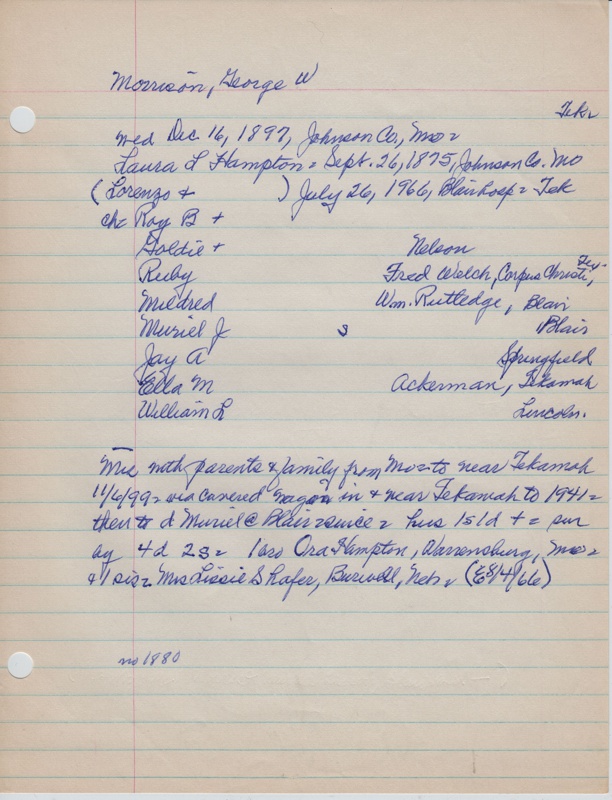 Morrison, George W
Tek
med Dec. 16, 1897, Johnson Co, Mo =
Laura L Hampton = Sept. 26, 1875, Johnson Co. Mo
(Lorenzo + ) July 26, 1966, Blair hosp = Tek
ch = Roy B +
Goldie + Nelson
Ruby Fred Welch, Corpus Christi, Tex
Mildred Wm. Rutledge, Blair
Muriel J s Blair
Jay A Springfield
Ella M Ackerman, Tekamah
William L Lincoln.
with parents & family from Mo = to near Tekamah
11/6/99 = via covered wagon in & near Tekamah to 1941 =
then to d Muriel @ Blair = since = hus 1s 1d + = sur
by 4d 2s = 1 bro Ord Hampton, Warrensburg, Mo =
& 1 sis = Mrs Lissie Shafer, Burwell, Neb = (8/4/66)
no 1880